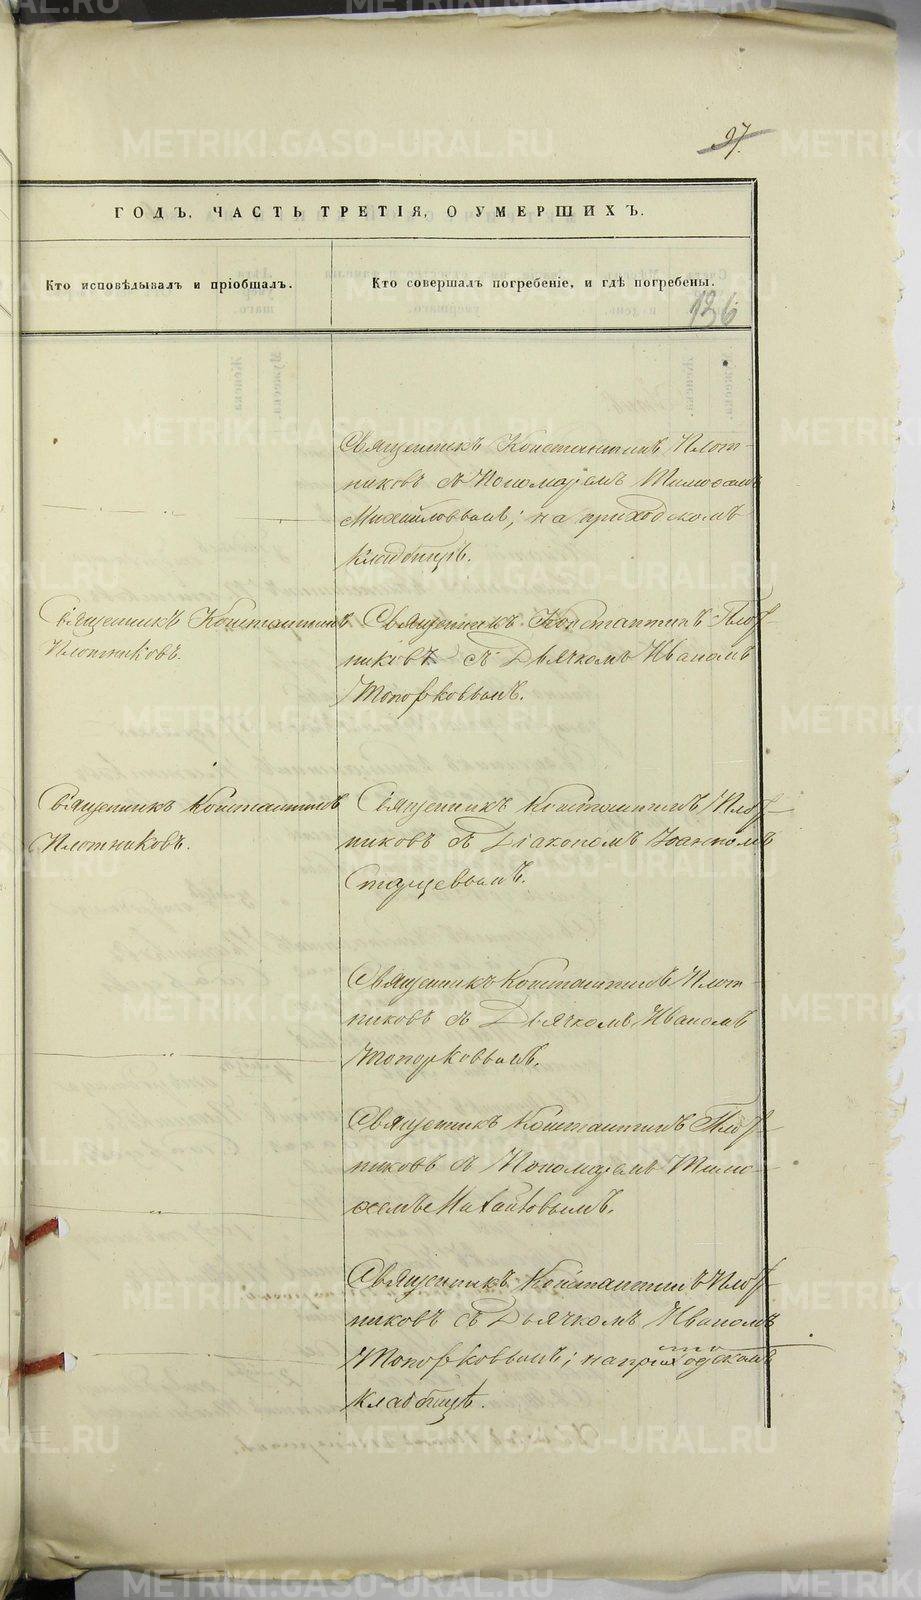 97.
ГОДЪ, ЧАСТЬ ТРЕТІЯ, О УМЕРШИХЪ.
Кто исповѣдывалъ и пріобщалъ.
Кто совершалъ погребеніе, и гдѣ погребены.
136
Священникъ Константинъ Плот-
никовъ съ Пономаремъ Тимофеемъ
Михайловымъ; на приходскомъ
кладбищѣ.
Священникъ Константинъ
Плотниковъ.
Священникъ Константинъ Плот-
никовъ съ Дьячкомъ Иваномъ
Топорковымъ.
Священникъ Константинъ
Плотниковъ.
Священникъ Константинъ Плот-
никовъ съ Діакономъ Іоанномъ
Старцевымъ.
Священникъ Константинъ Плот-
никовъ съ Дьячкомъ Иваномъ
Топорковымъ.
Священникъ Константинъ Плот-
никовъ съ Пономаремъ Тимо-
феемъ Михайловымъ.
Священникъ Константинъ Плот-
никовъ съ Дьячкомъ Иваномъ
Топорковымъ; на приходскомъ
кладбищѣ.
METRIKI.GASO-URAL.RU